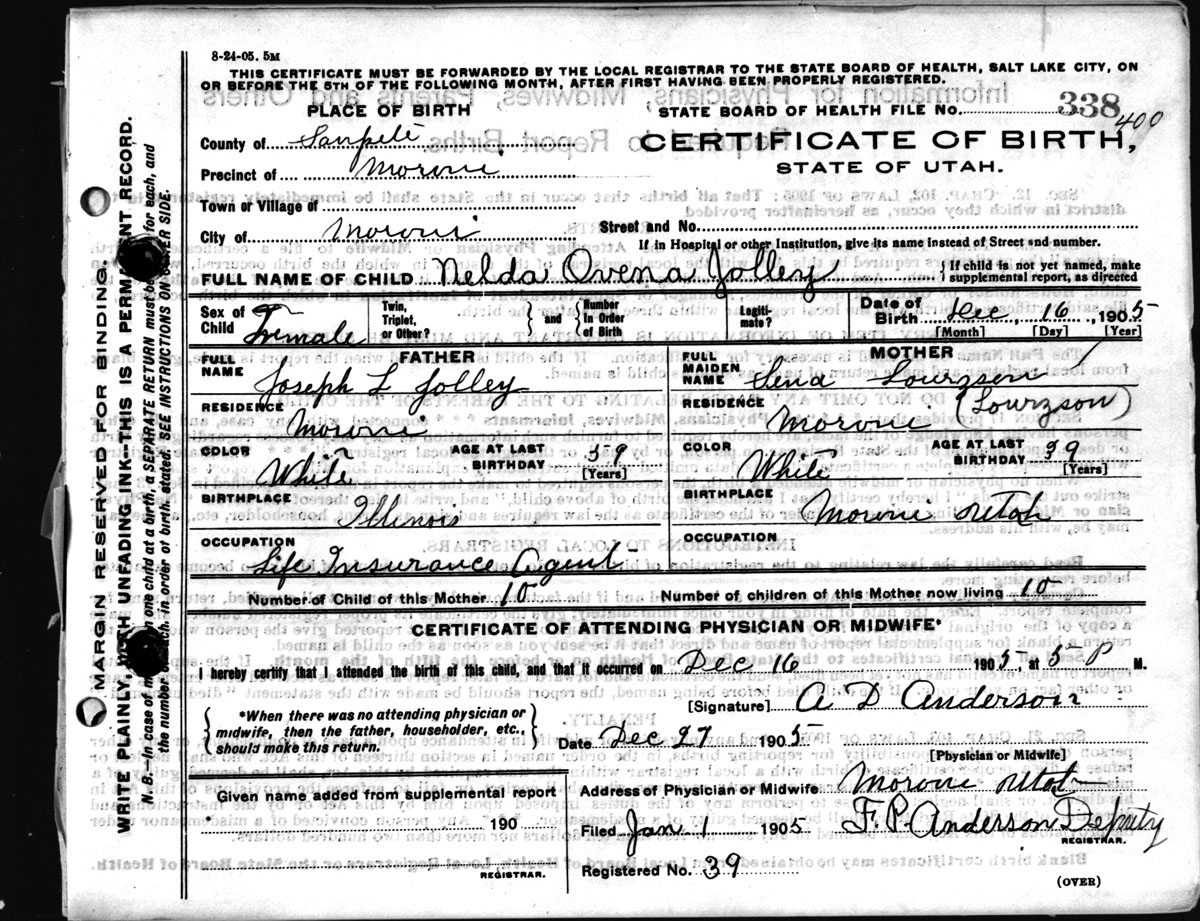 8-24-05. 5M
THIS CERTIFICATE MUST BE FORWARDED BY THE LOCAL REGISTRAR TO THE STATE BOARD OF HEALTH, SALT LAKE CITY, ON
OR BEFORE THE 5TH OF THE FOLLOWING MONTH, AFTER FIRST HAVING BEEN PROPERLY REGISTERED.
PLACE OF BIRTH
STATE BOARD OF HEALTH FILE No. 338 400
County of Sanpete
CERTIFICATE OF BIRTH,
Precinct of Moroni
STATE OF UTAH.
Town or Village of
City of Moroni
Street and No.
If in Hospital or other Institution, give its name instead of Street and number.
FULL NAME OF CHILD Nelda Ovena Jolley
} If child is not yet named, make
supplemental report, as directed
Sex of Child Female
Twin, Triplet, or Other?
{ and } Number In Order of Birth
Legiti-mate?
Date of Birth Dec, 16, 1905
[Month] [Day] [Year]
FATHER
FULL NAME Joseph L Jolley
RESIDENCE Moroni
COLOR White
AGE AT LAST BIRTHDAY 39 [Years]
BIRTHPLACE Illinois
OCCUPATION Life Insurance Agent
MOTHER
FULL MAIDEN NAME Sena Lowrzsen
(Lowrzson)
RESIDENCE Moroni
COLOR White
AGE AT LAST BIRTHDAY 39 [Years]
BIRTHPLACE Moroni Utah
OCCUPATION
Number of Child of this Mother 10
Number of children of this Mother now living 10
CERTIFICATE OF ATTENDING PHYSICIAN OR MIDWIFE*
I hereby certify that I attended the birth of this child, and that it occurred on Dec 16 1905, at 5 P M.
[Signature] A D Anderson
{ *When there was no attending physician or
midwife, then the father, householder, etc.,
should make this return. }
Date Dec 27 1905
[Physician or Midwife]
Given name added from supplemental report
190
REGISTRAR.
Address of Physician or Midwife Moroni Utah
Filed Jan 1 1905 F. P. Anderson Deputy
REGISTRAR.
Registered No. 39
(OVER)
MARGIN RESERVED FOR BINDING.
WRITE PLAINLY, WITH UNFADING INK—THIS IS A PERMANENT RECORD.
N. B.—In case of more than one child at a birth, a SEPARATE RETURN must be made for each, and
the number of each, in order of birth, stated. SEE INSTRUCTIONS ON OTHER SIDE.